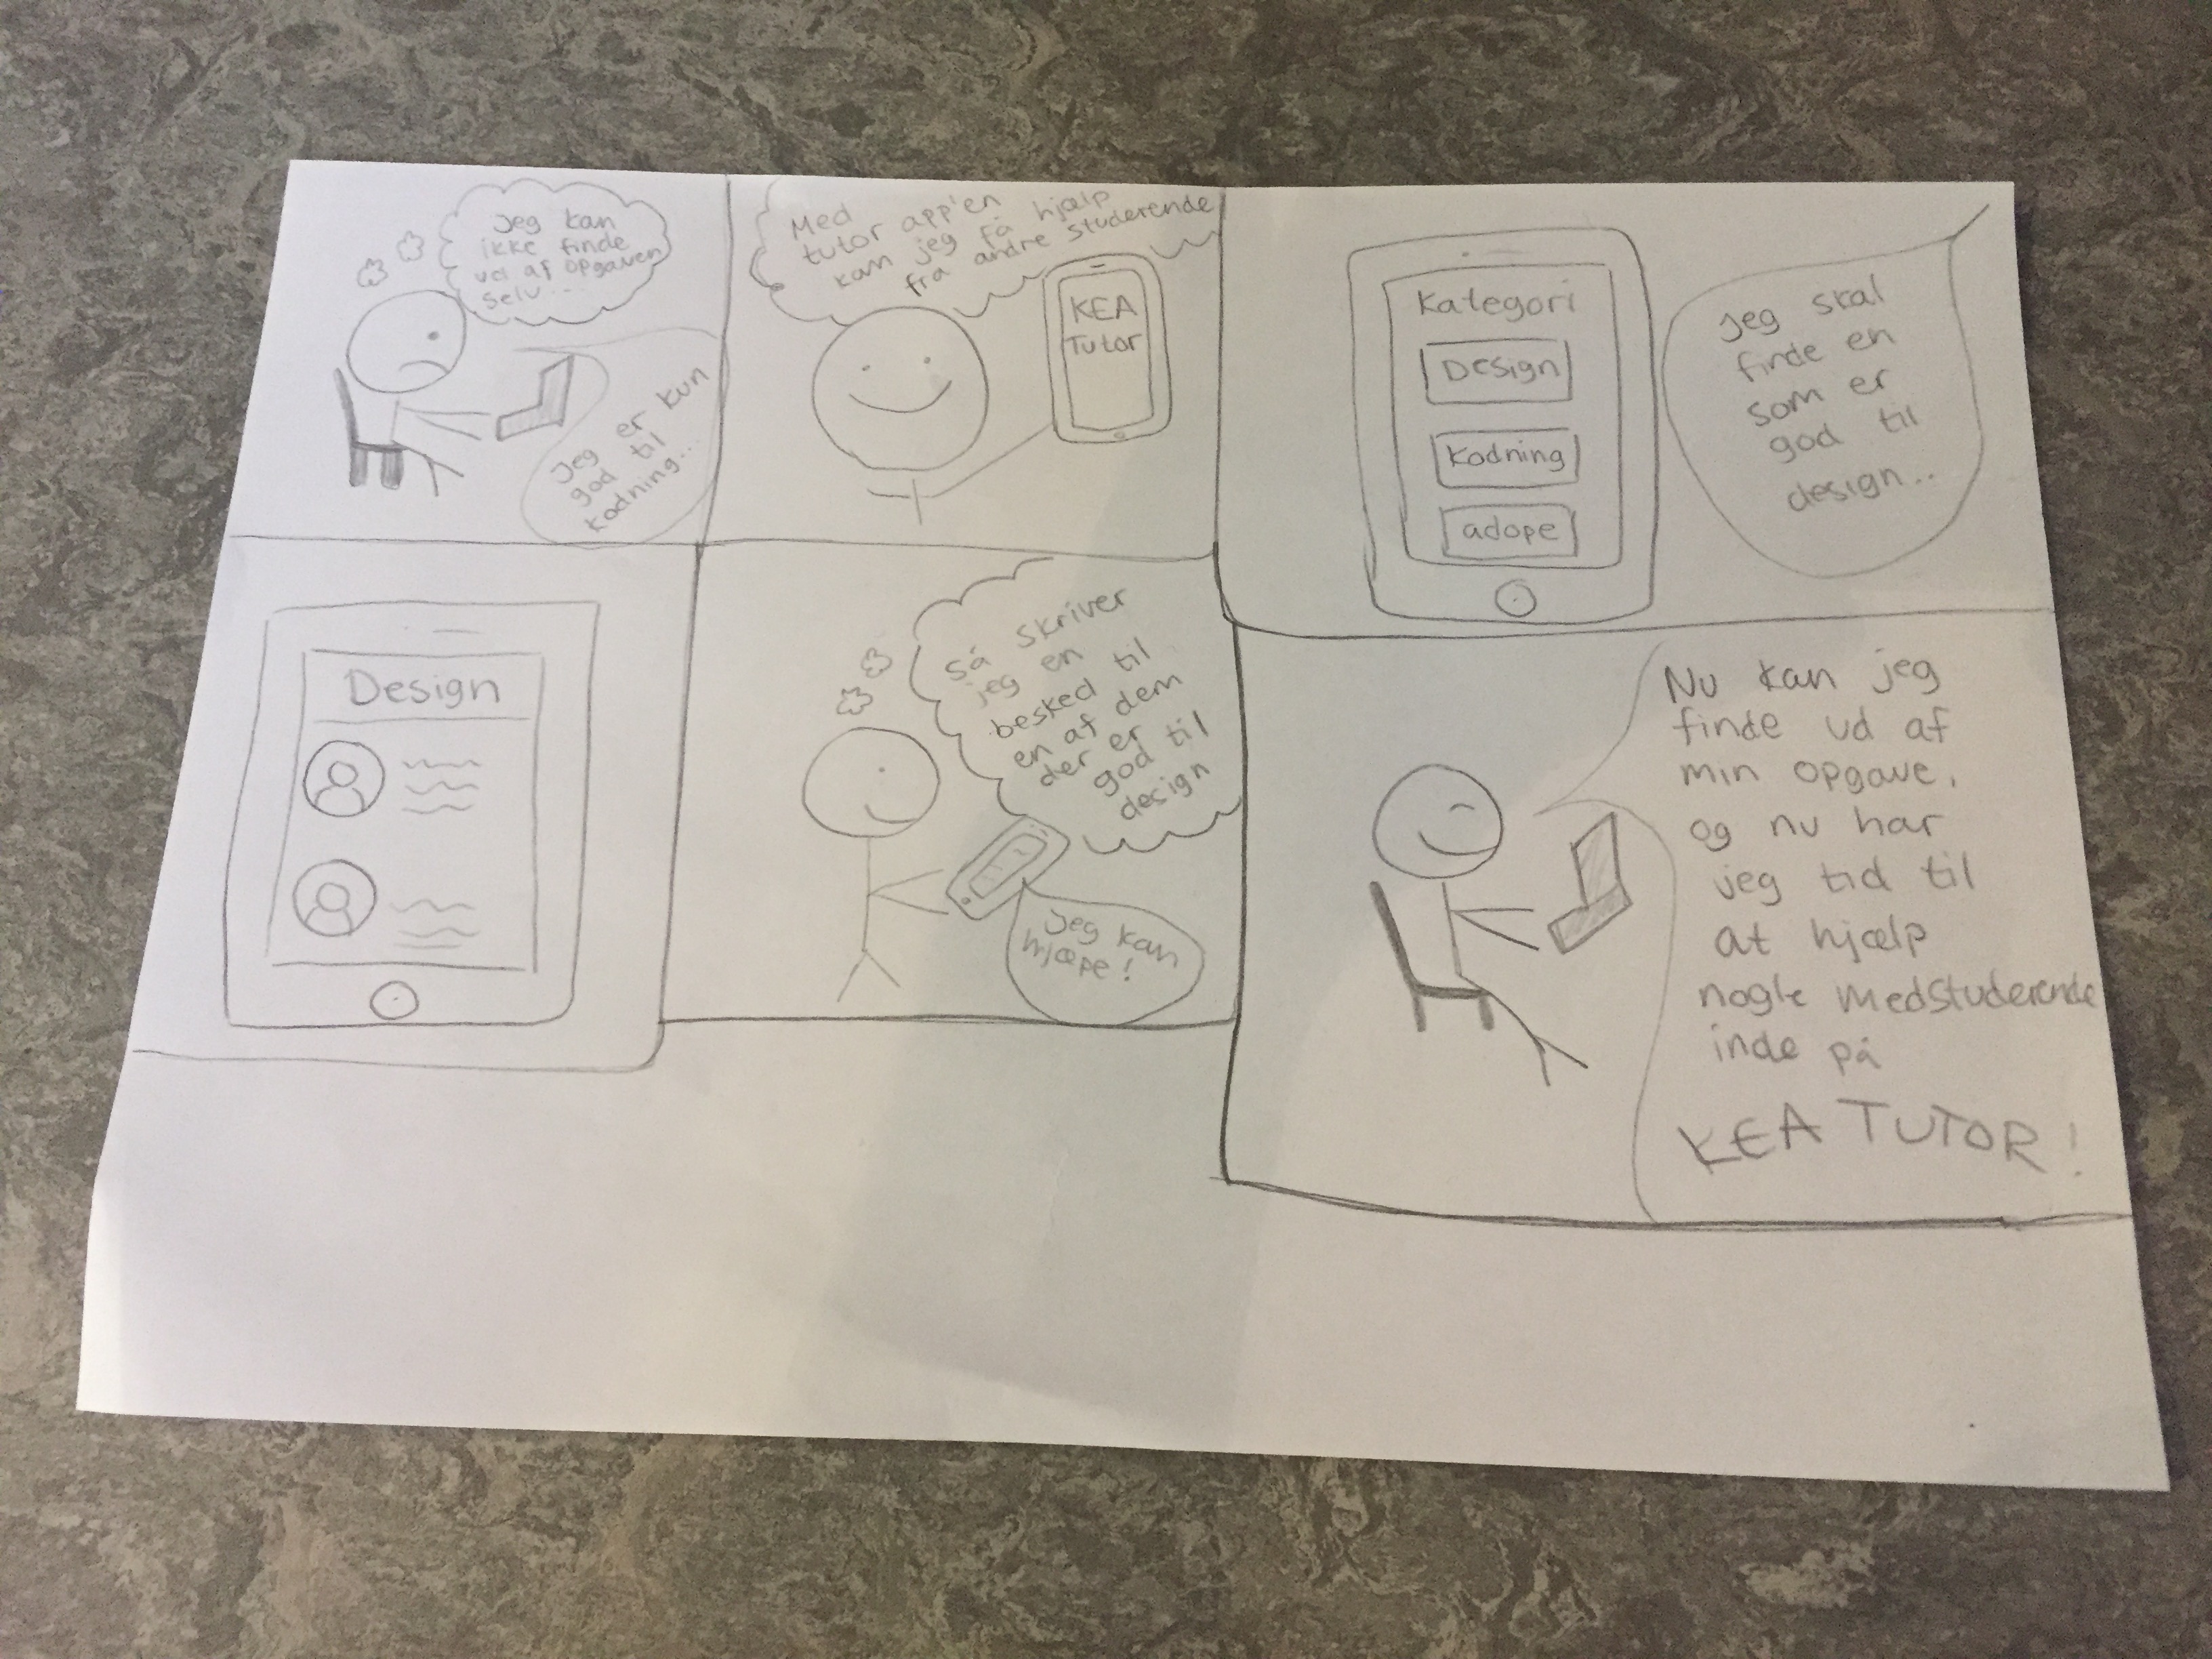 Jeg kan
ikke finde
ud af opgaven
selv...
Jeg er kun
god til
kodning...
Med
tutor app'en
kan jeg få hjælp
fra andre studerende
KEA
Tutor
Kategori
Design
Kodning
adope
Jeg skal
finde en
som er
god til
design...
Design
Så skriver
jeg en
besked til
en af dem
der er
god til
design
Jeg kan
hjæpe!
Nu kan jeg
finde ud af
min opgave,
og nu har
jeg tid til
at hjælp
nogle medstuderende
inde på
KEA TUTOR!